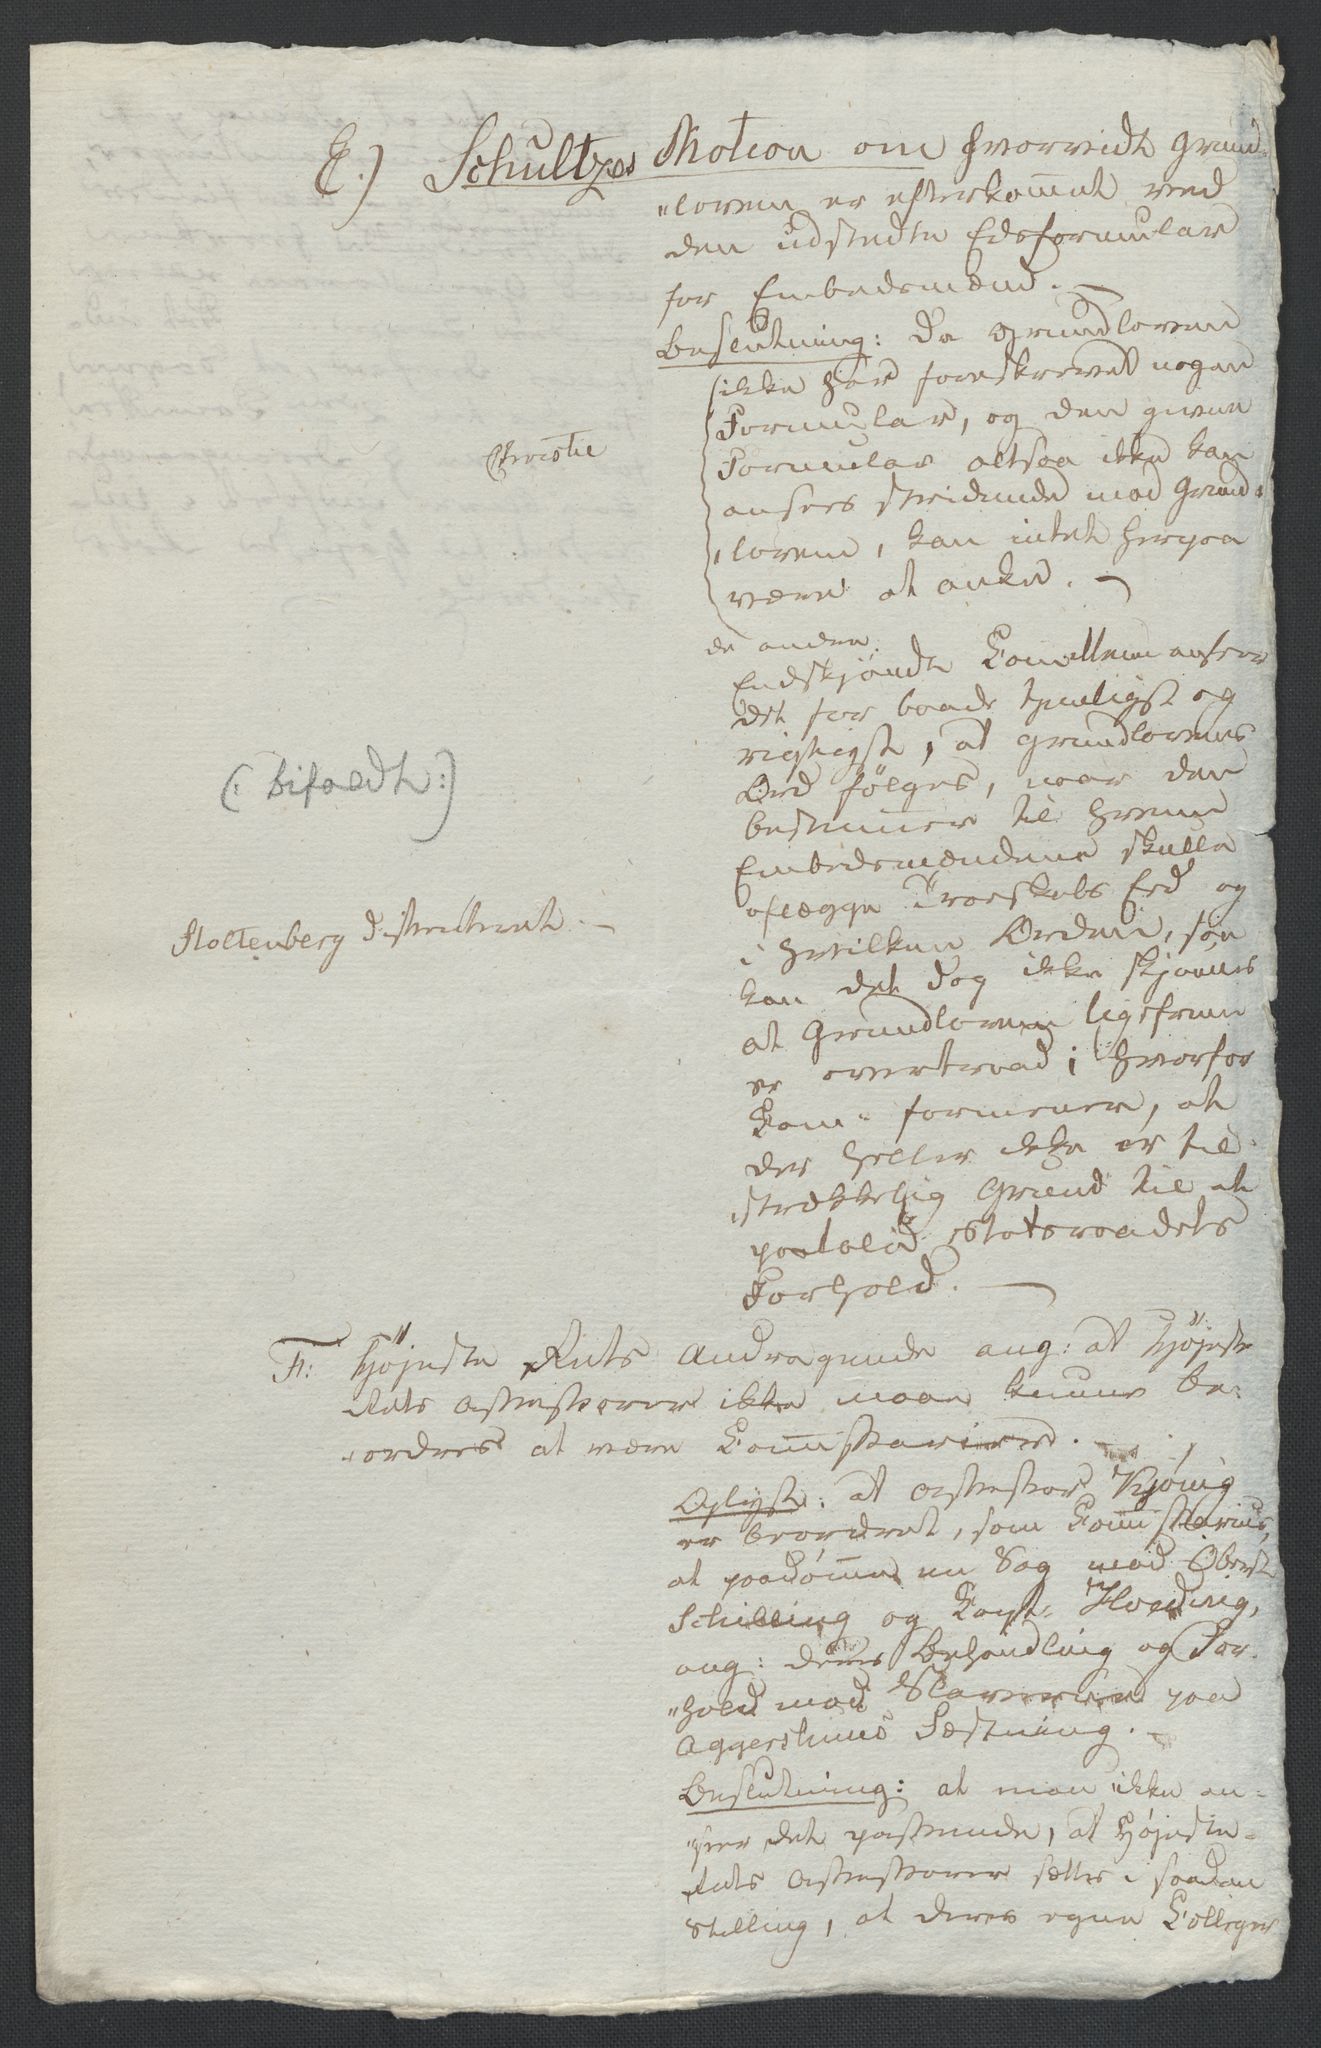 E.) Schultzes Motion om hvorvidt Grund-
"loven er efterkommet ved
den udstedte Edsformular
for Embedsmænd. —
Beslutning: Da Grundloven
ikke har foreskrevet nogen
Formular, og den givne
Formular altsaa ikke kan
Christie
ansees stridende mod Grund-
"loven, kan intet herpaa
være at anke. —
de andre:
Endskjøndt Comitteen anseer
det for baade tjenligst og
rigtigst, at Grundlovens
Ord følges, naar den
(: bifaldt:)
bestemmer til hvem
Embedsmændene skulle
aflægge Troeskabs Eed og
Stoltenberg distraheret. —
i hvilken Orden, saa
kan det dog ikke skjønnes
at Grundloven ligefrem
er overtraad; hvorfor
Com: formener, at
der heller ikke er til-
"strækkelig Grund til at
paatale Statsraadets
Forhold. —
F: Højeste Rets Andragende ang: at Højeste
Rets Assessorer ikke maae kunne be-
"ordres at være Commissarier. —
Oplyst: at Assessor Kjønig
er beordret, som Commissarius,
at paadømme en Sag mod Oberst
Schilling og Capt: Hvedvig,
ang: deres Behandling og For-
"hold mod Slaverne paa
Aggershuus Fæstning. —
Beslutning: at man ikke an-
"seer det passende, at Højeste-
Rets Assessorer sættes i saadan
Stilling, at deres egne Colleger